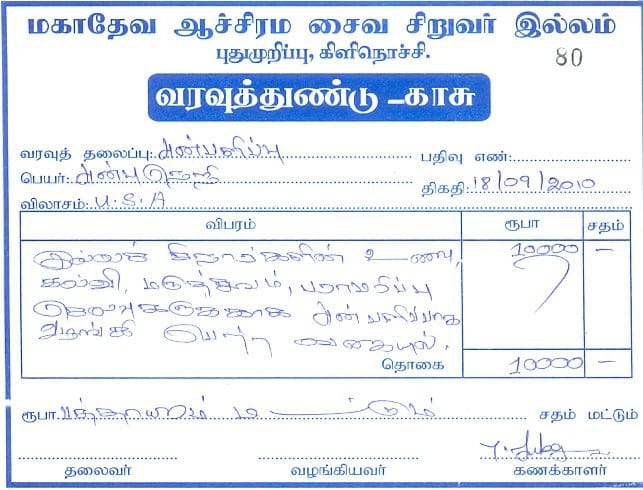 மகாதேவ ஆச்சிரம சைவ சிறுவர் இல்லம்
புதுமுறிப்பு, கிளிநொச்சி.
80
வரவுத்துண்டு -காசு
வரவுத் தலைப்பு: அன்பளிப்பு பதிவு எண்:
பெயர்: அன்புநெறி திகதி: 18/09/2010
விலாசம்: U.S.A
விபரம் ரூபா சதம்
இல்லச் சிறார்களின் உணவு, 10000 –
கல்வி, மருத்துவம், பராமரிப்பு
செலவுகளுக்காக அன்பளிப்பாக
வழங்கி பெற்ற வகையில்.
தொகை 10000 –
ரூபா பத்தாயிரம் மட்டும் சதம் மட்டும்
தலைவர் வழங்கியவர் கணக்காளர்